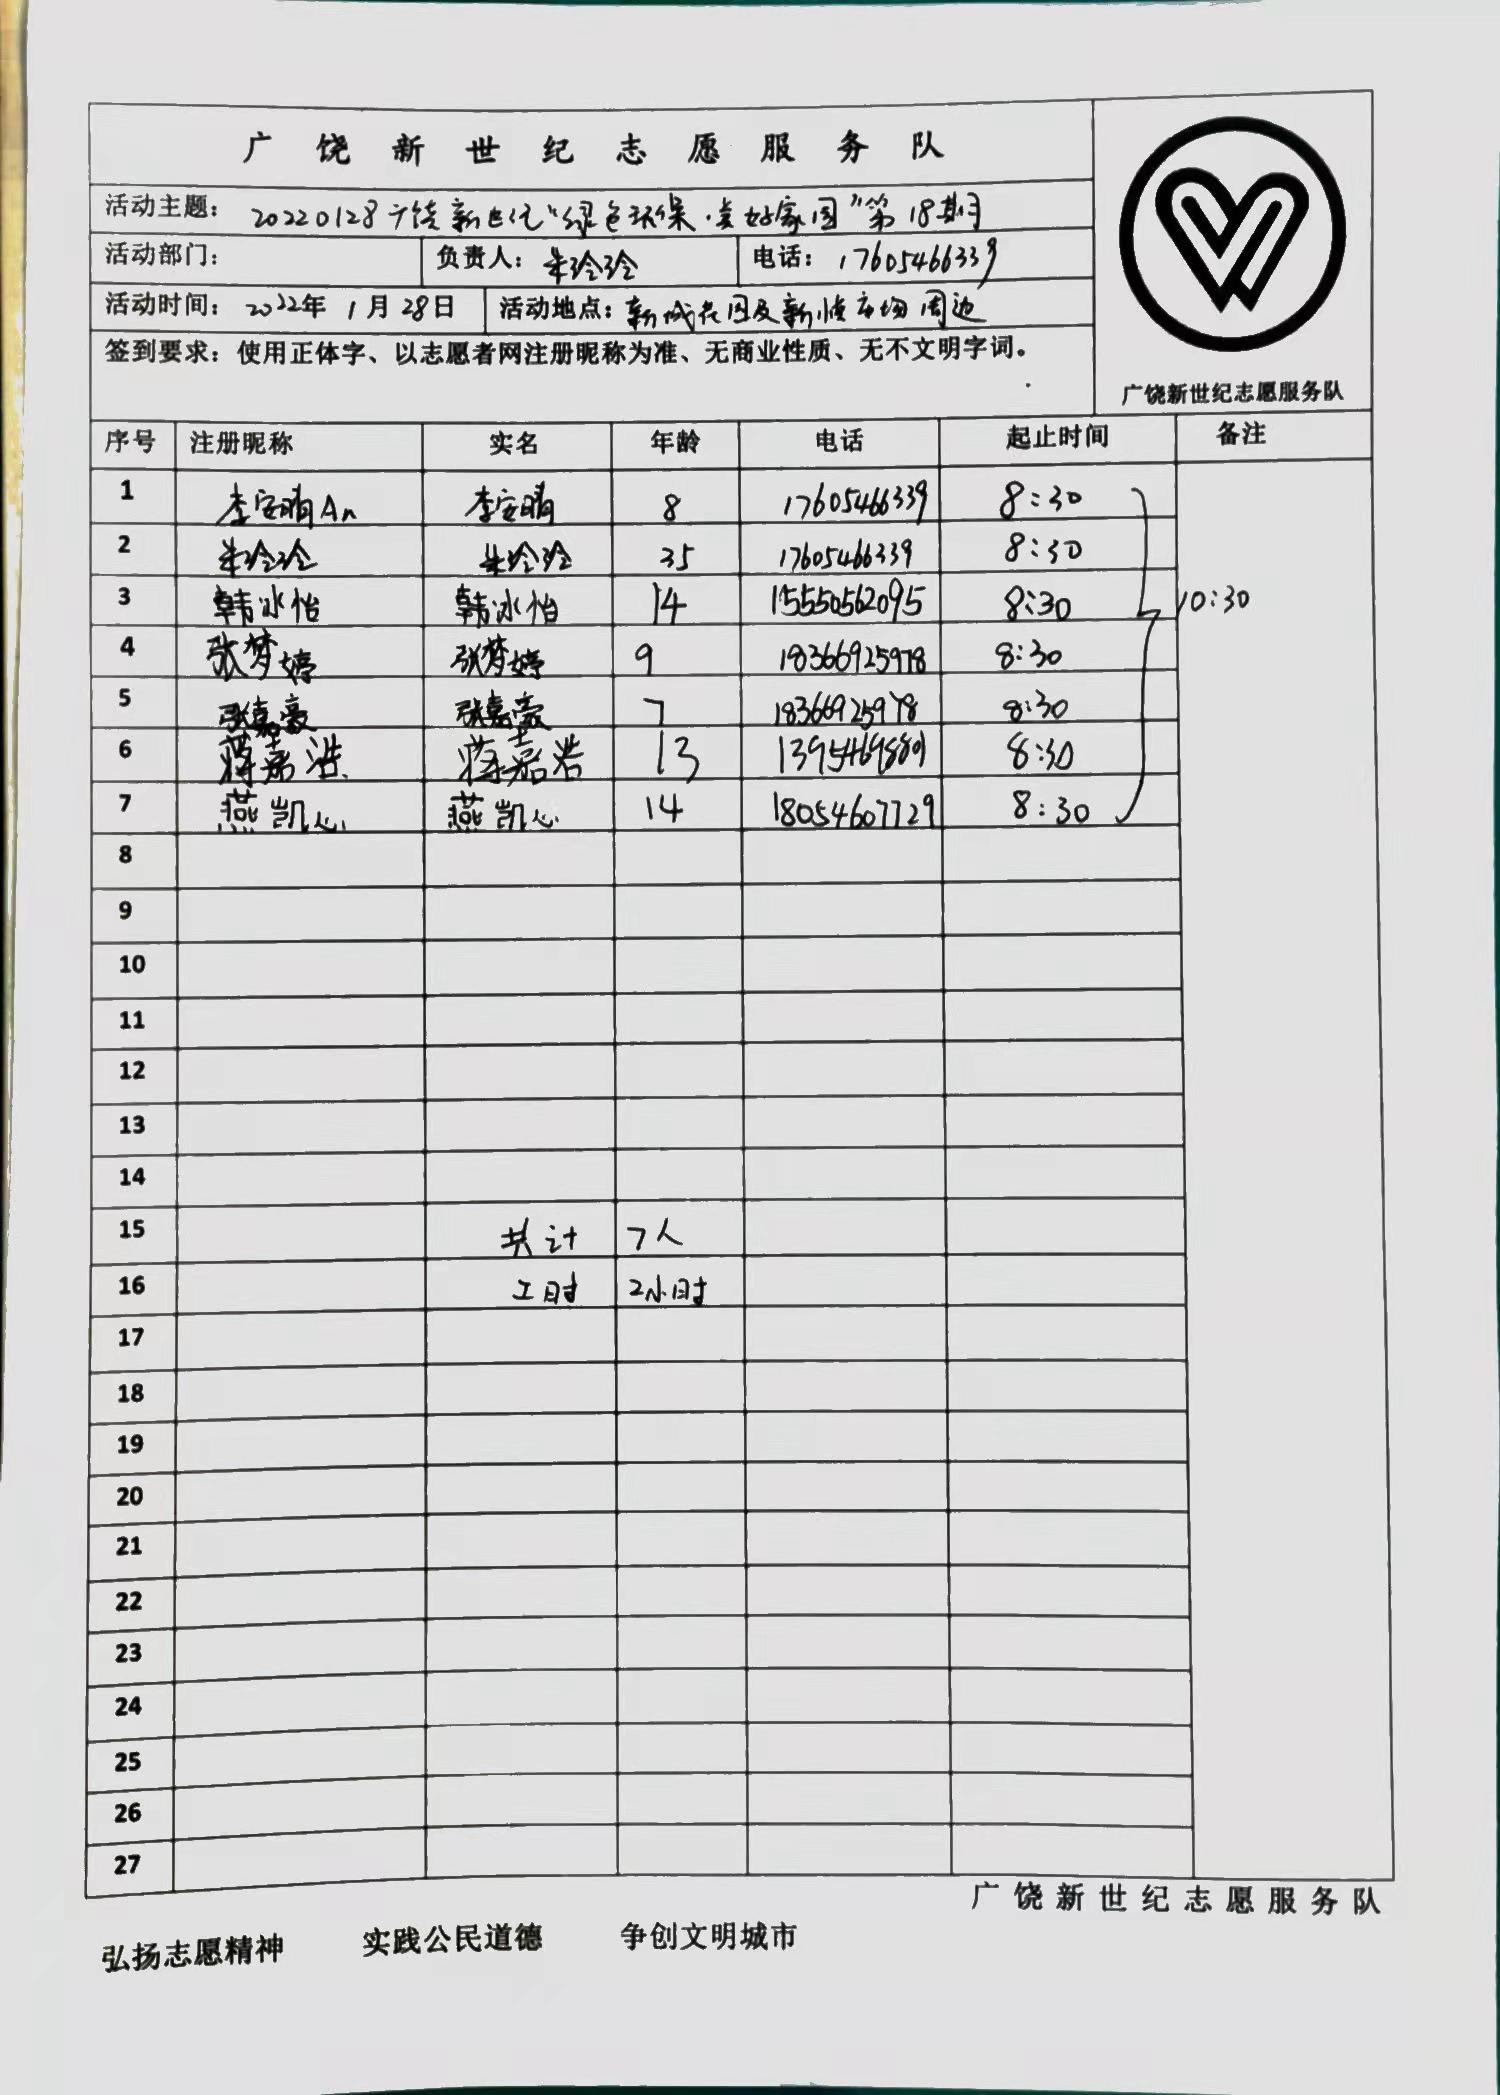 广饶新世纪志愿服务队
活动主题：20220128广饶新世纪“绿色环保·美好家园”第18期
活动部门： 负责人：朱玲玲 电话：17605466339
活动时间：2022年1月28日 活动地点：新城花园及新悦市场周边
签到要求：使用正体字、以志愿者网注册昵称为准、无商业性质、无不文明字词。
广饶新世纪志愿服务队
序号 注册昵称 实名 年龄 电话 起止时间 备注
1 李安晴An 李安晴 8 17605466339 8:30
2 朱玲玲 朱玲玲 35 17605466339 8:30
3 韩冰怡 韩冰怡 14 15550562095 8:30 10:30
4 张梦婷 张梦婷 9 18366925978 8:30
5 张嘉豪 张嘉豪 7 18366925978 8:30
6 蒋嘉浩 蒋嘉浩 13 8:30
7 燕凯心 燕凯心 14 18054607729 8:30
8
9
10
11
12
13
14
15 共计 7人
16 工时 2小时
17
18
19
20
21
22
23
24
25
26
27
广饶新世纪志愿服务队
弘扬志愿精神 实践公民道德 争创文明城市